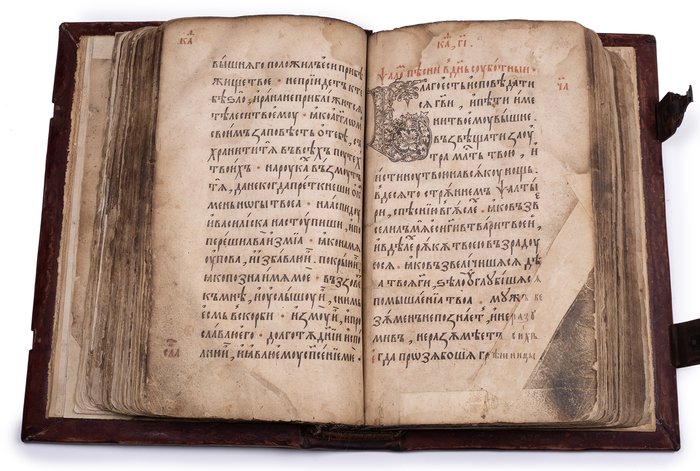 вышняго положилъ еси прибѣ
жище твое · неприидетъ къте
бѣ ѕло, ирана неприближится
тѣлеси твоемоу · ꙗко аггл҃ом
своимъ заповѣсть отебѣ, съ
хранитита въвсѣхъ путех
твоихъ · нарукахъ возмутъ
тѧ, данекогда преткнеши ѡка
мень ногы твоѧ · нааспидоу
ивасилиска настоупиши, ипо
переши льва изміа · ꙗко намѧ
оупова, иизбавлю и҆ · покрыю и҆
ꙗко позна имѧ мое · възове
къмнѣ, иоуслышоу и҆, снимъ
есмь въскорби · изъмоу и҆, ипро
славлю его · долготѫ дніи испо
лню и҆, иꙗвлю емоу спасеніе мое ·
ка, гі.
ѱало пѣсни вднь соуботныи ·
Благо есть исповѣдатисѧ
гв҃и, ипѣти име
нитвоемоувышне ·
възвѣщати заоу
тра млть твою, и
истиноу твою навсѧкоу нощь ·
въдесѧтострꙋннемъ ѱалты
ри, спѣснію вгѫсле · ꙗко възве
селилъ мѧ еси ги втвари твоеи,
ивдѣлехъ рꙋкꙋ твоею възрадоу
юсѧ · ꙗко възвеличишасѧ дѣ
ла твоꙗ ги, ѕѣло оуглубишасѧ
помышленіа твоа · мꙋжъ бе
зꙋменъ непознаетъ, инеразу
мивъ, неразꙋмѣетъ сихъ ·
егда прозѧбоша грѣшницы